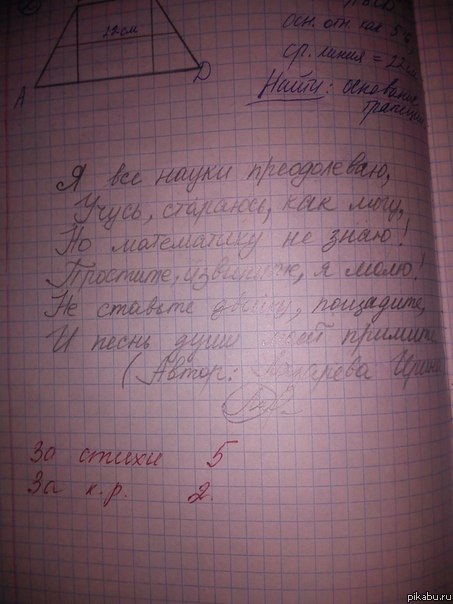 22 см
A
D
осн. отн. как 5:6
ср. линия = 22 см
Найти: основания
трапеции.
Я все науки преодолеваю,
Учусь, стараюсь, как могу,
Но математику не знаю!
Простите, извините, я молю!
Не ставьте двойку, пощадите,
И песнь души моей примите
(Автор: Ирина
За стихи 5
За к.р. 2.
pikabu.ru